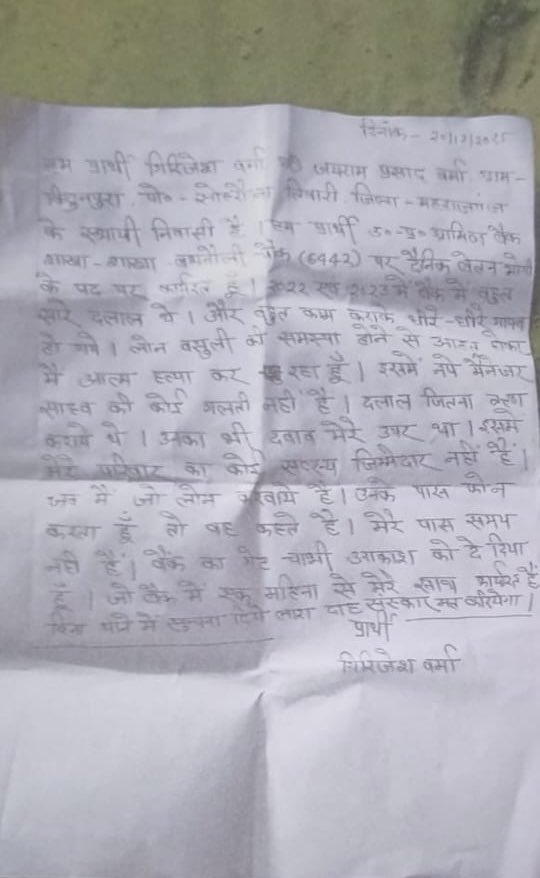 दिनांक - 20/12/2025
हम प्रार्थी गिरिजेश वर्मा जयराम प्रसाद वर्मा ग्राम-
पो०- तिवारी जिला - महराजगंज
के स्थायी निवासी है । हम प्रार्थी उ०-प्र० ग्रामिण बैंक
शाखा - शाखा चौक (6442) पर दैनिक वेतन भोगी
के पद पर कार्यरत हूँ । 2022 एवं 2023 में बैंक में बहुत
सारे दलाल थे । और बहुत काम कराके धीरे-धीरे गायब
हो गये । लोन वसुली की समस्या होने से आहत होकर
मै आत्म हत्या कर रहा हूँ । इसमें नये मैनेजर
साहब की कोई गलती नहीं है । दलाल जितना
कराये थे । उनका भी दबाव मेरे उपर था । इसमें
मेरे परिवार का कोई सदस्य जिम्मेदार नहीं है ।
जब मैं जो लोन करवाये है । उनके पास फोन
करता हूँ तो वह कहते है । मेरे पास समय
नही है । बैंक का गेट चाभी आकाश को दे दिया
हूँ । जो बैंक में एक महिना से मेरे साथ कार्यरत है
बिना थाने में सुचना दिये लाश दाह संस्कार मत करियेगा ।
प्रार्थी
गिरिजेश वर्मा